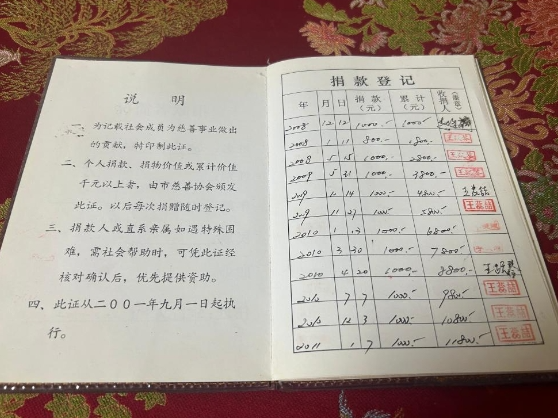 说 明
一、为记载社会成员为慈善事业做出
的贡献，特印制此证。
二、个人捐款、捐物价值或累计价值
千元以上者，由市慈善协会颁发
此证。以后每次捐赠随时登记。
三、捐款人或直系亲属如遇特殊困
难，需社会帮助时，可凭此证经
核对确认后，优先提供资助。
四、此证从二〇〇一年九月一日起执
行。
捐款登记
年 月 日 捐款（元） 累计（元） 收捐人（盖章）
2008 12 12 1000.- 1000.-
2008 1 11 800.- 1800.-
2008 5 15 1000.- 2800.-
2008 5 21 1000.- 3800.-
2009 14 1000.- 4800.-
2009 11 1000.- 5800.-
2010 1 13 1000.- 6800.-
2010 3 30 1000.- 7800.-
2010 4 20 1000.- 8800.-
2010 7 7 1000.- 9800.-
2010 12 3 1000.- 10800.-
2011 1 7 1000.- 11800.-